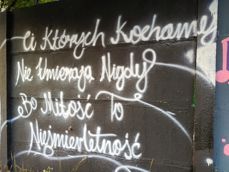 Ci Których Kochamy
Nie Umierają Nigdy
Bo Miłość To
Nieśmiertelność